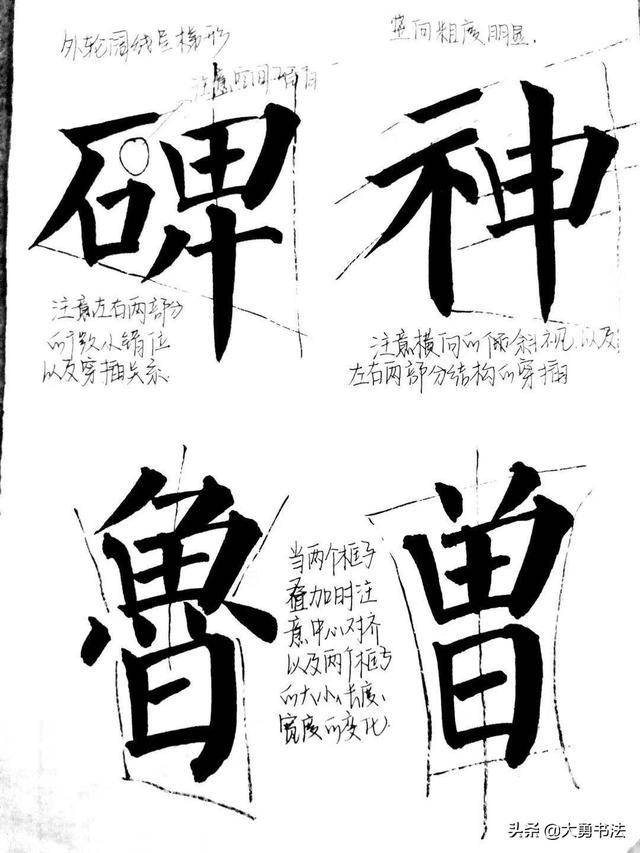 外轮阔线呈梯形
注意空间
碑
注意左右两部分
以及穿插关系
竖向粗度明显.
神
注意横向的倾斜 以及
左右两部分结构的穿插
魯
当两个框与
叠加时注
意中心对齐
以及两个框与
的大小、长度、
宽度的变化.
曾
头条@大勇书法